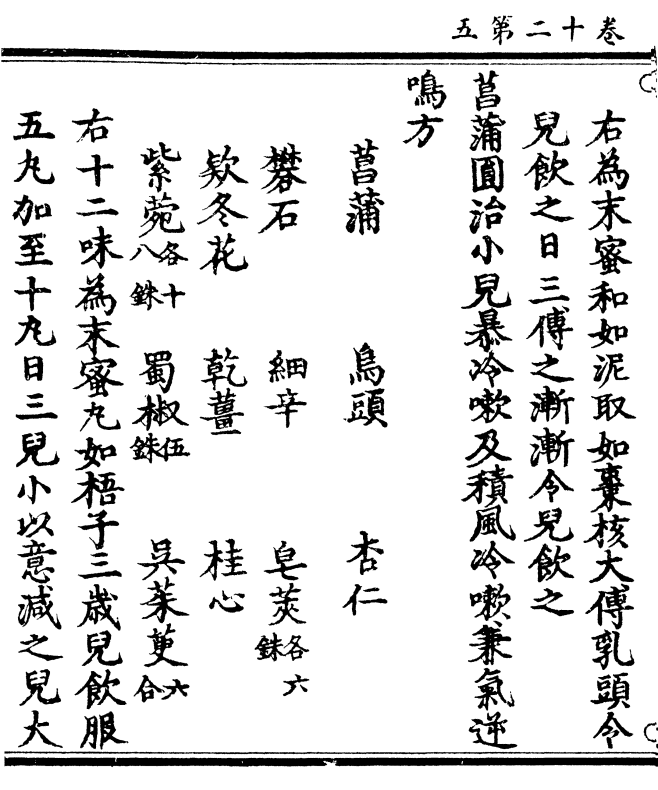 卷十二第五
右為末蜜和如泥取如棗核大傅乳頭令
兒飲之日三傅之漸漸令兒飲之
菖蒲圓治小兒暴冷嗽及積風冷嗽兼氣逆
鳴方
菖蒲 烏頭 杏仁
礬石 細辛 皂莢各六銖
欵冬花 乾薑 桂心
紫菀各十八銖 蜀椒伍銖 吳茱萸六合
右十二味為末蜜丸如梧子三歲兒飲服
五丸加至十丸日三兒小以意減之兒大